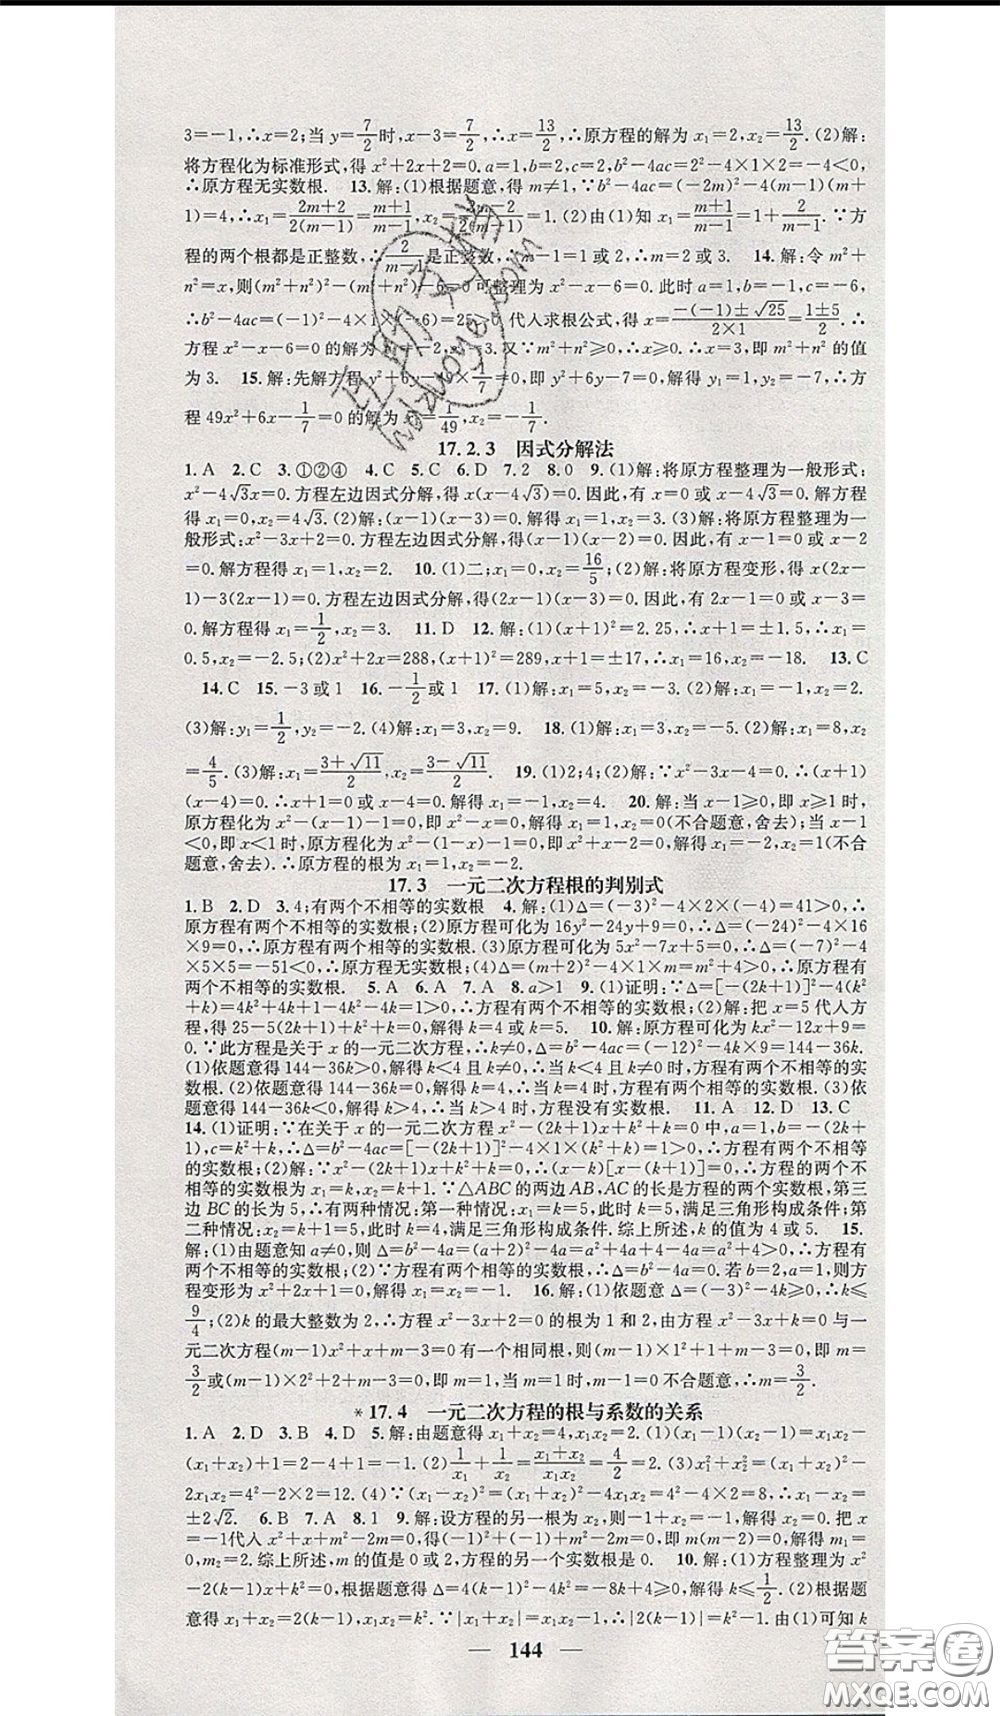 3=-1,∴x=2;当 y=7/2时,x-3=7/2,∴x=13/2,∴原方程的解为 x₁=2,x₂=13/2.(2)解:
将方程化为标准形式,得 x²+2x+2=0.a=1,b=2,c=2,b²-4ac=2²-4×1×2=-4<0,
∴原方程无实数根. 13.解:(1)根据题意,得 m≠1.∵b²-4ac=(-2m)²-4(m-1)(m+
1)=4,∴x₁=(2m+2)/(2(m-1))=(m+1)/(m-1),x₂=(2m-2)/(2(m-1))=1.(2)由(1)知 x₁=(m+1)/(m-1)=1+2/(m-1).∵方
程的两个根都是正整数,∴2/(m-1)是正整数,∴m-1=1或2,∴m=2或3. 14.解:令 m²+
n²=x,则(m²+n²)²-(m²+n²)-6=0可整理为 x²-x-6=0.此时 a=1,b=-1,c=-6,
∴b²-4ac=(-1)²-4×1×(-6)=25>0.代入求根公式,得 x=(-(-1)±√25)/(2×1)=(1±5)/2.∴
方程 x²-x-6=0的解为 x₁=-2,x₂=3.又∵m²+n²≥0,∴x≥0,∴x=3,即 m²+n²的值
为3. 15.解:先解方程 y²+6y-49×1/7=0,即 y²+6y-7=0,解得 y₁=1,y₂=-7,∴方
程49x²+6x-1/7=0的解为 x₁=1/49,x₂=-1/7.
17.2.3 因式分解法
1.A 2.C 3.①②④ 4.C 5.C 6.D 7.2 8.0 9.(1)解:将原方程整理为一般形式:
x²-4√3x=0.方程左边因式分解,得 x(x-4√3)=0.因此,有 x=0或 x-4√3=0.解方程
得 x₁=0,x₂=4√3.(2)解:(x-1)(x-3)=0.解得 x₁=1,x₂=3.(3)解:将原方程整理为一
般形式:x²-3x+2=0.方程左边因式分解,得(x-1)(x-2)=0.因此,有 x-1=0或 x-2
=0.解方程得 x₁=1,x₂=2. 10.(1)二;x₁=0,x₂=16/5;(2)解:将原方程变形,得 x(2x
-1)-3(2x-1)=0.方程左边因式分解,得(2x-1)(x-3)=0.因此,有 2x-1=0或 x-3=
0.解方程得 x₁=1/2,x₂=3. 11.D 12.解:(1)(x+1)²=2.25,∴x+1=±1.5,∴x₁=
0.5,x₂=-2.5;(2)x²+2x=288,(x+1)²=289,x+1=±17,∴x₁=16,x₂=-18. 13.C
14.C 15.-3或1 16.-1/2或1 17.(1)解:x₁=5,x₂=-3.(2)解:x₁=-1,x₂=2.
(3)解:y₁=1/2,y₂=-2.(4)解:x₁=3,x₂=9. 18.(1)解:x₁=3,x₂=-5.(2)解:x₁=8,x₂
=4/5.(3)解:x₁=(3+√11)/2,x₂=(3-√11)/2. 19.(1)2;4;(2)解:∵x²-3x-4=0,∴(x+1)
(x-4)=0.∴x+1=0或 x-4=0.解得 x₁=-1,x₂=4. 20.解:当 x-1≥0,即 x≥1时,
原方程化为 x²-(x-1)-1=0,即 x²-x=0.解得 x₁=1,x₂=0(不合题意,舍去);当 x-1
<0,即 x<1时,原方程化为 x²-(1-x)-1=0,即 x²+x-2=0.解得 x₁=1(不合
题意,舍去),x₂=-2.∴原方程的根为 x₁=1,x₂=-2.
17.3 一元二次方程根的判别式
1.B 2.D 3.4;有两个不相等的实数根 4.解:(1)Δ=(-3)²-4×2×(-4)=41>0,∴
原方程有两个不相等的实数根;(2)原方程可化为16y²-24y+9=0,∴Δ=(-24)²-4×16
×9=0,∴原方程有两个相等的实数根.(3)原方程可化为5x²-7x+5=0,∴Δ=(-7)²-4
×5×5=-51<0,∴原方程无实数根;(4)Δ=(m+2)²-4×1×m=m²+4>0,∴原方程有
两个不相等的实数根. 5.A 6.A 7.A 8.a>1 9.(1)证明:∵Δ=[-(2k+1)]²-4(k²
+k)=4k²+4k+1-4k²-4k=1>0,∴方程有两个不相等的实数根;(2)解:把 x=5代入方
程,得25-5(2k+1)+k²+k=0,解得 k=4或 k=5. 10.解:原方程可化为 kx²-12x+9=
0.∵此方程是关于 x 的一元二次方程,∴k≠0,Δ=b²-4ac=(-12)²-4k×9=144-36k.
(1)依题意得144-36k>0,解得 k<4且 k≠0,∴当 k<4且 k≠0时,方程有两个不相等的实
数根.(2)依题意得144-36k=0,解得 k=4,∴当 k=4时,方程有两个相等的实数根.(3)依
题意得144-36k<0,解得 k>4,∴当 k>4时,方程没有实数根. 11.A 12.D 13.C
14.(1)证明:∵在关于 x 的一元二次方程 x²-(2k+1)x+k²+k=0中,a=1,b=-(2k+
1),c=k²+k,∴Δ=b²-4ac=[-(2k+1)]²-4×1×(k²+k)=1>0,∴方程有两个不相等
的实数根;(2)解:∵x²-(2k+1)x+k²+k=0,∴(x-k)[x-(k+1)]=0,∴方程的两个不
相等的实数根为 x₁=k,x₂=k+1.∵△ABC的两边AB,AC的长是方程的两个实数根,第三
边BC的长为5,∴有两种情况:第一种情况:x₁=k=5,此时 k=5,满足三角形构成条件;第
二种情况:x₂=k+1=5,此时 k=4,满足三角形构成条件.综上所述,k的值为4或5. 15.
解:(1)由题意知 a≠0,则 Δ=b²-4a=(a+2)²-4a=a²+4a+4-4a=a²+4>0,∴方程有
两个不相等的实数根;(2)∵方程有两个相等的实数根,∴Δ=b²-4a=0.若 b=2,a=1,则
方程变形为 x²+2x+1=0,解得 x₁=x₂=-1. 16.解:(1)依题意 Δ=(-3)²-4k≥0,∴k≤
9/4;(2)k的最大整数为2,∴方程 x²-3x+2=0的根为1和2,由方程 x²-3x+k=0与一
元二次方程(m-1)x²+x+m-3=0有一个相同根,则(m-1)×1²+1+m-3=0,即 m=
3/2或(m-1)×2²+2+m-3=0,即 m=1,当 m=1时,m-1=0不合题意,∴m=3/2.
*17.4 一元二次方程的根与系数的关系
1.A 2.D 3.B 4.D 5.解:由题意得 x₁+x₂=4,x₁x₂=2.(1)(x₁-1)(x₂-1)=x₁x₂-
(x₁+x₂)+1=2-4+1=-1.(2)1/x₁+1/x₂=(x₁+x₂)/(x₁x₂)=4/2=2.(3)x₁²+x₂²=(x₁+x₂)²-
2x₁x₂=4²-2×2=12.(4)∵(x₁-x₂)²=(x₁+x₂)²-4x₁x₂=4²-4×2=8,∴x₁-x₂=
±2√2. 6.B 7.A 8.1 9.解:设方程的另一根为 x₂,则-1+x₂=-1,解得 x₂=0.把 x
=-1代入 x²+x+m²-2m=0,得(-1)²+(-1)+m²-2m=0,即 m(m-2)=0,解得 m₁=
0,m₂=2.综上所述,m的值是0或2,方程的另一个实数根是0. 10.解:(1)方程整理为 x²
-2(k-1)x+k²=0,根据题意得 Δ=4(k-1)²-4k²≥0,解得 k≤1/2.(2)根据题
意得 x₁+x₂=2(k-1),x₁x₂=k².∵|x₁+x₂|=x₁x₂-1,∴|2(k-1)|=k²-1.由(1)可知 k
144
互助文档
huzhuoye.com
答案圈
MXQE.COM